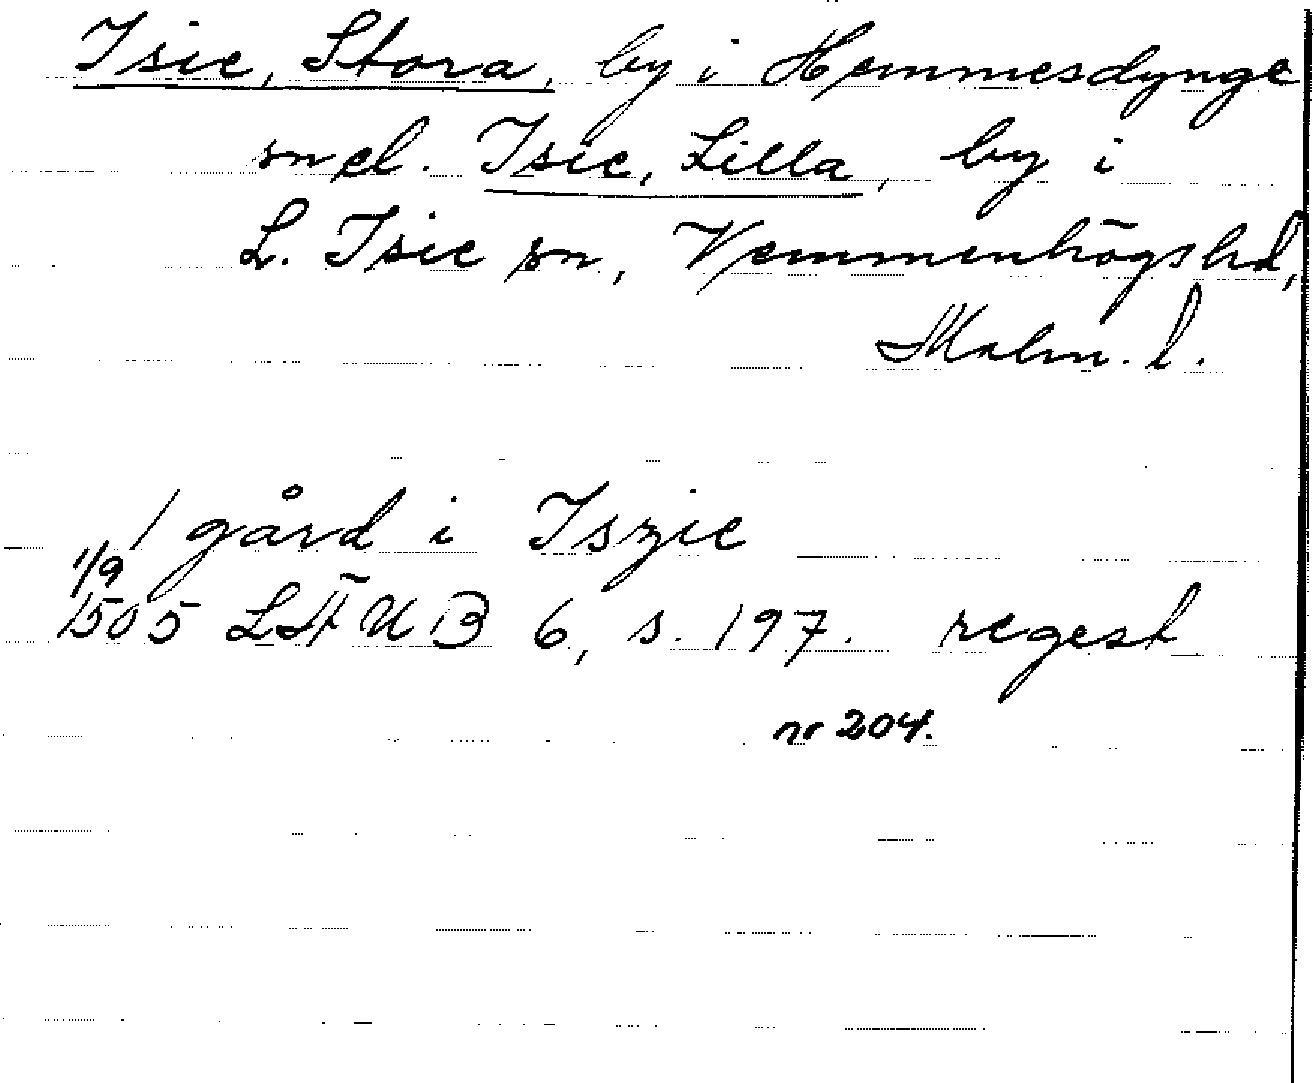 Isie, Stora, by i Hemmesdynge
sn el. Isie, Lilla, by i
L. Isie sn, Vemmenhögs hd,
Malm. l.
1 gård i Iszie
1/9
1505 LÄUB 6, s. 197. regest
nr 204.